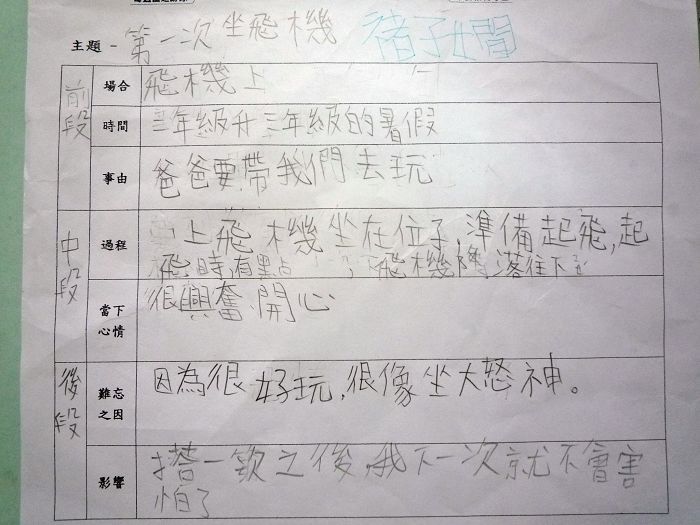 主題－第一次坐飛機
前段
場合 飛機上
時間 二年級升三年級的暑假
事由 爸爸要帶我們去玩
中段
過程 上飛機坐在位子,準備起飛,起
飛時,有點 飛機降落往下
當下心情 很興奮、開心
後段
難忘之因 因為很好玩,很像坐大怒神。
影響 搭一次之後,我下一次就不會害
怕了